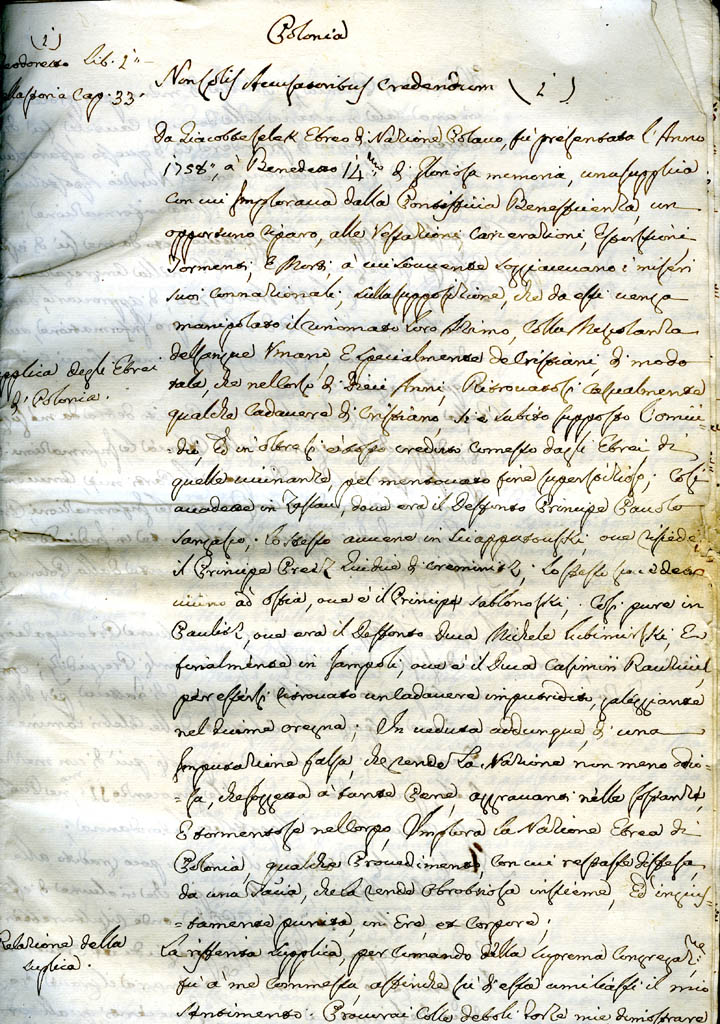 Polonia
(1)
Teodoreto lib. 1°
Nonsolis Accusatoribus credendum (1)
Cap. 33.
Da Giacobbe Selek Ebreo di Nazione Polaco, fù presentata l'Anno
1758, à Benedetto 14mo di gloriosa memoria, una supplica
con cui Implorava dalla Pontificia Beneficenza, un
opportuno riparo, alle Vessazioni, Carcerazioni, Estorsioni
Tormenti, E Morti, à cui sovente soggiacevano i miseri
suoi connazionali, sulla supposizione, che da essi venga
manipolato il rinomato loro Azimo, colla Mescolanza
del sangue Umano, E specialmente de Cristiani, di modo
Supplica degli Ebrei
tale, che nel corso di Dieci Anni, Ritrovatosi casualmente
di Polonia.
qualche Cadavere di Cristiano, si è subito supposto l'omici-
=dio, Ed in oltre si è tosto creduto commesso dagli Ebrei di
quelle vicinanze, pel mentovato fine superstizioso; Così
accadette in Zaslau, dove era il Deffonto Principe Paolo
Sangusco; lo stesso avvenne in ove risiede
il Principe di ; lo stesso
vicino ad Ostia, ove è il Principe Jablonoski; Così pure in
ove era il Deffonto Duca Michele E
finalmente in Jampoli, ove è il Duca Casimiri
per essersi ritrovato un Cadavere imputridito, galeggiante
nel fiume ; In veduta addunque, di una
Imputazione falsa, che rende la Nazione non meno odio-
=sa, che soggetta à tante Pene, aggravanti nelle sostanze,
E tormentose nel corpo, Implora la Nazione Ebrea di
Polonia, qualche Provedimento, con cui restasse diffesa,
da una Taccia, che la rende obrobriosa insieme, Ed ingius-
=tamente punita, in Ere, et Corpore;
Relazione della
suplica.
La riferita supplica, per comando della Suprema Congregazne
fù à me commessa, affinche sù di essa umiliassi il mio
Sentimento. Procurai colle deboli forze mie dimostrare